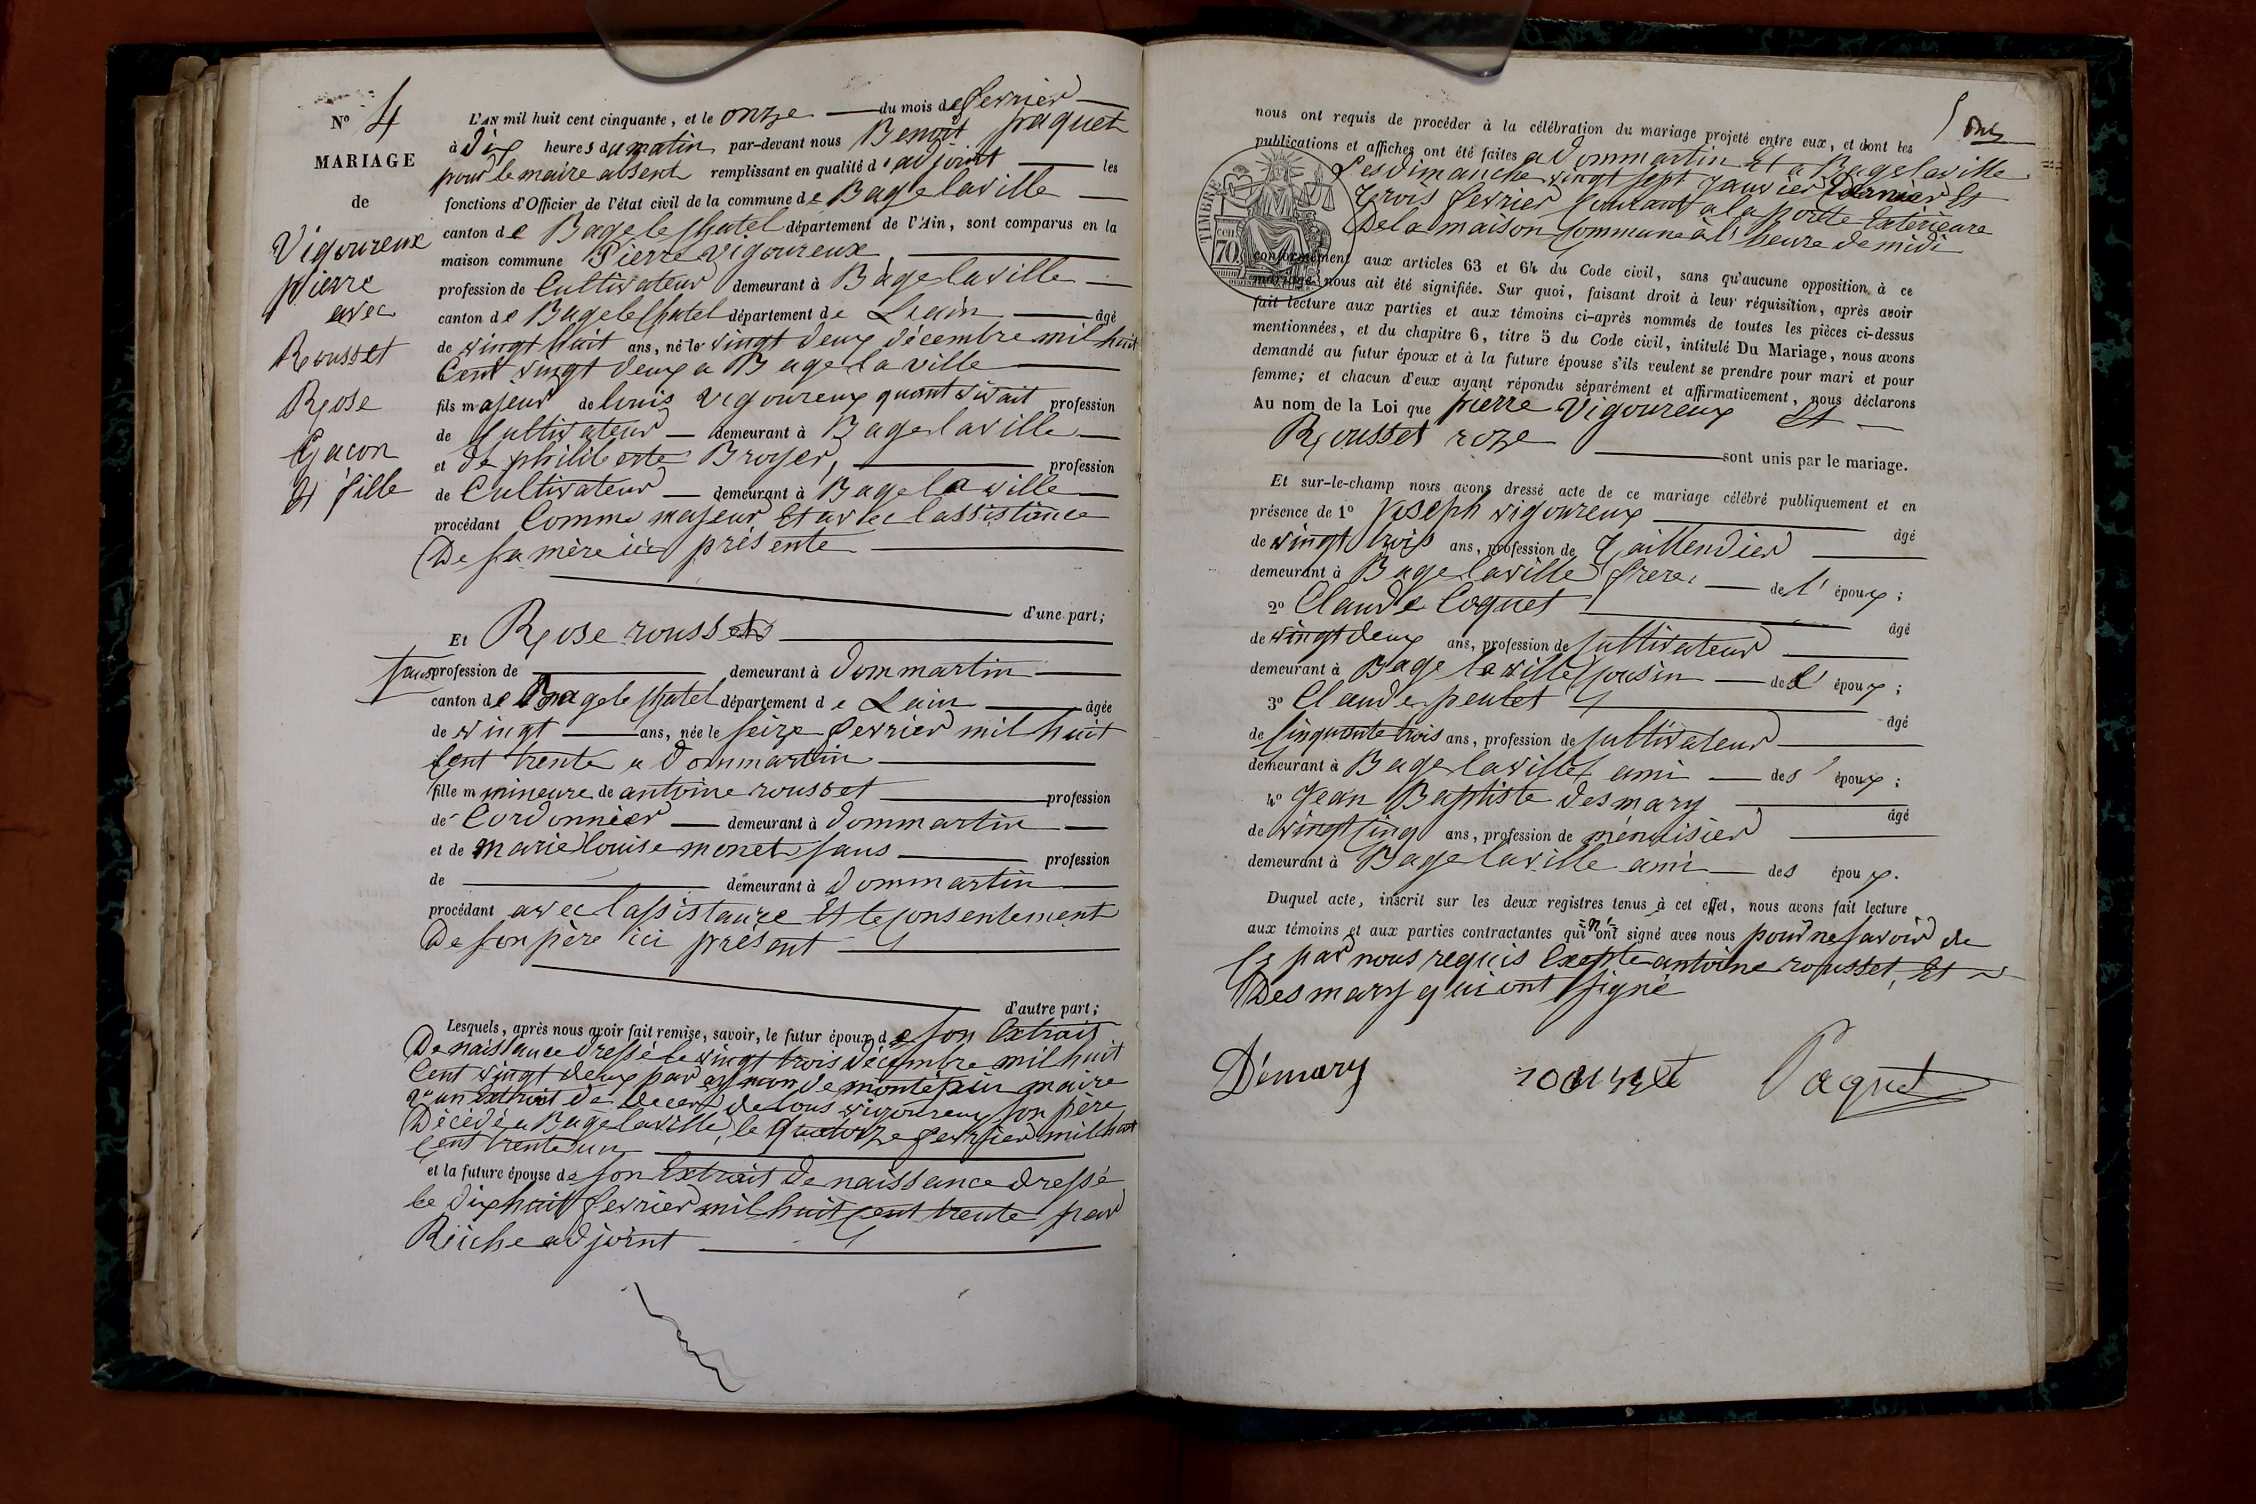 N° 4
MARIAGE
de
Vigoureux
pierre
avec
Rousset
Rose
Gacon
et fille
L'AN mil huit cent cinquante, et le onze du mois de fevrier
à dix heures du matin par-devant nous Benoit paquet
pour le maire absent remplissant en qualité d'adjoint les
fonctions d'Officier de l'état civil de la commune de Bage la ville
canton de Bage le Chatel département de l'Ain, sont comparus en la
maison commune Pierre vigoureux
profession de Cultivateur demeurant à Bage la ville
canton de Bage le Chatel département de Lain âgé
de vingt huit ans, né le vingt deux décembre mil huit
Cent vingt deux a Bage la ville
fils majeur de louis vigoureux quant vivait profession
de Cultivateur demeurant à Bage la ville
et de philiberte Broyer, profession
de Cultivateur demeurant à Bage la ville
procédant Comme majeur et avec lassistance
De sa mère ici présente
d'une part;
Et Rose rousset
sans profession de demeurant à dommartin
canton de Bage le Chatel département de Lain âgée
de vingt ans, née le seize fevrier mil huit
Cent trente a dommartin
fille mineure de antoine rousset profession
de Cordonnier demeurant à dommartin
et de marie louise monet sans profession
de demeurant à dommartin
procédant avec lassistance et le consentement
De son père ici présent
d'autre part;
Lesquels, après nous avoir fait remise, savoir, le futur époux de son Extrait
De naissance dressé le vingt trois décembre mil huit
Cent vingt deux par de montépin maire
2° un extrait de décert de vigoureux son père
Décédé a Bage la ville, le quatorze fevrier mil huit
Cent trente un
et la future épouse de son Extrait de naissance dressé
le dix huit fevrier mil huit cent trente par
Riche adjoint
nous ont requis de procéder à la célébration du mariage projeté entre eux, et dont les
publications et affiches ont été faites a dommartin et a Bage la ville
Les dimanche vingt sept Janvier dernier et
Trois fevrier Courant a la portte Extérieure
De la maison Commune à l'heure de midi
TIMBRE
70
conformément aux articles 63 et 64 du Code civil, sans qu'aucune opposition à ce
mariage nous ait été signifiée. Sur quoi, faisant droit à leur réquisition, après avoir
fait lecture aux parties et aux témoins ci-après nommés de toutes les pièces ci-dessus
mentionnées, et du chapitre 6, titre 5 du Code civil, intitulé Du Mariage, nous avons
demandé au futur époux et à la future épouse s'ils veulent se prendre pour mari et pour
femme; et chacun d'eux ayant répondu séparément et affirmativement, nous déclarons
Au nom de la Loi que pierre Vigoureux et
Rousset roze
sont unis par le mariage.
Et sur-le-champ nous avons dressé acte de ce mariage célébré publiquement et en
présence de 1° Joseph vigoureux âgé
de vingt trois ans, profession de Taillendier
demeurant à Bage la ville frere de l'époux;
2° Claude Coquet âgé
de vingt deux ans, profession de Cultivateur
demeurant à Bage la ville Cousin de l'époux;
3° Claude peulet âgé
de Cinquante trois ans, profession de Cultivateur
demeurant à Bage la ville ami des époux;
4° Jean Baptiste desmary âgé
de vingt cinq ans, profession de ménuisier
demeurant à Bage la ville ami des époux.
Duquel acte, inscrit sur les deux registres tenus à cet effet, nous avons fait lecture
aux témoins et aux parties contractantes qui n'ont signé avec nous pour ne savoir de
ce par nous requis Excepte antoine rousset, et
Desmary qui ont signé
Démary rousset Paquet